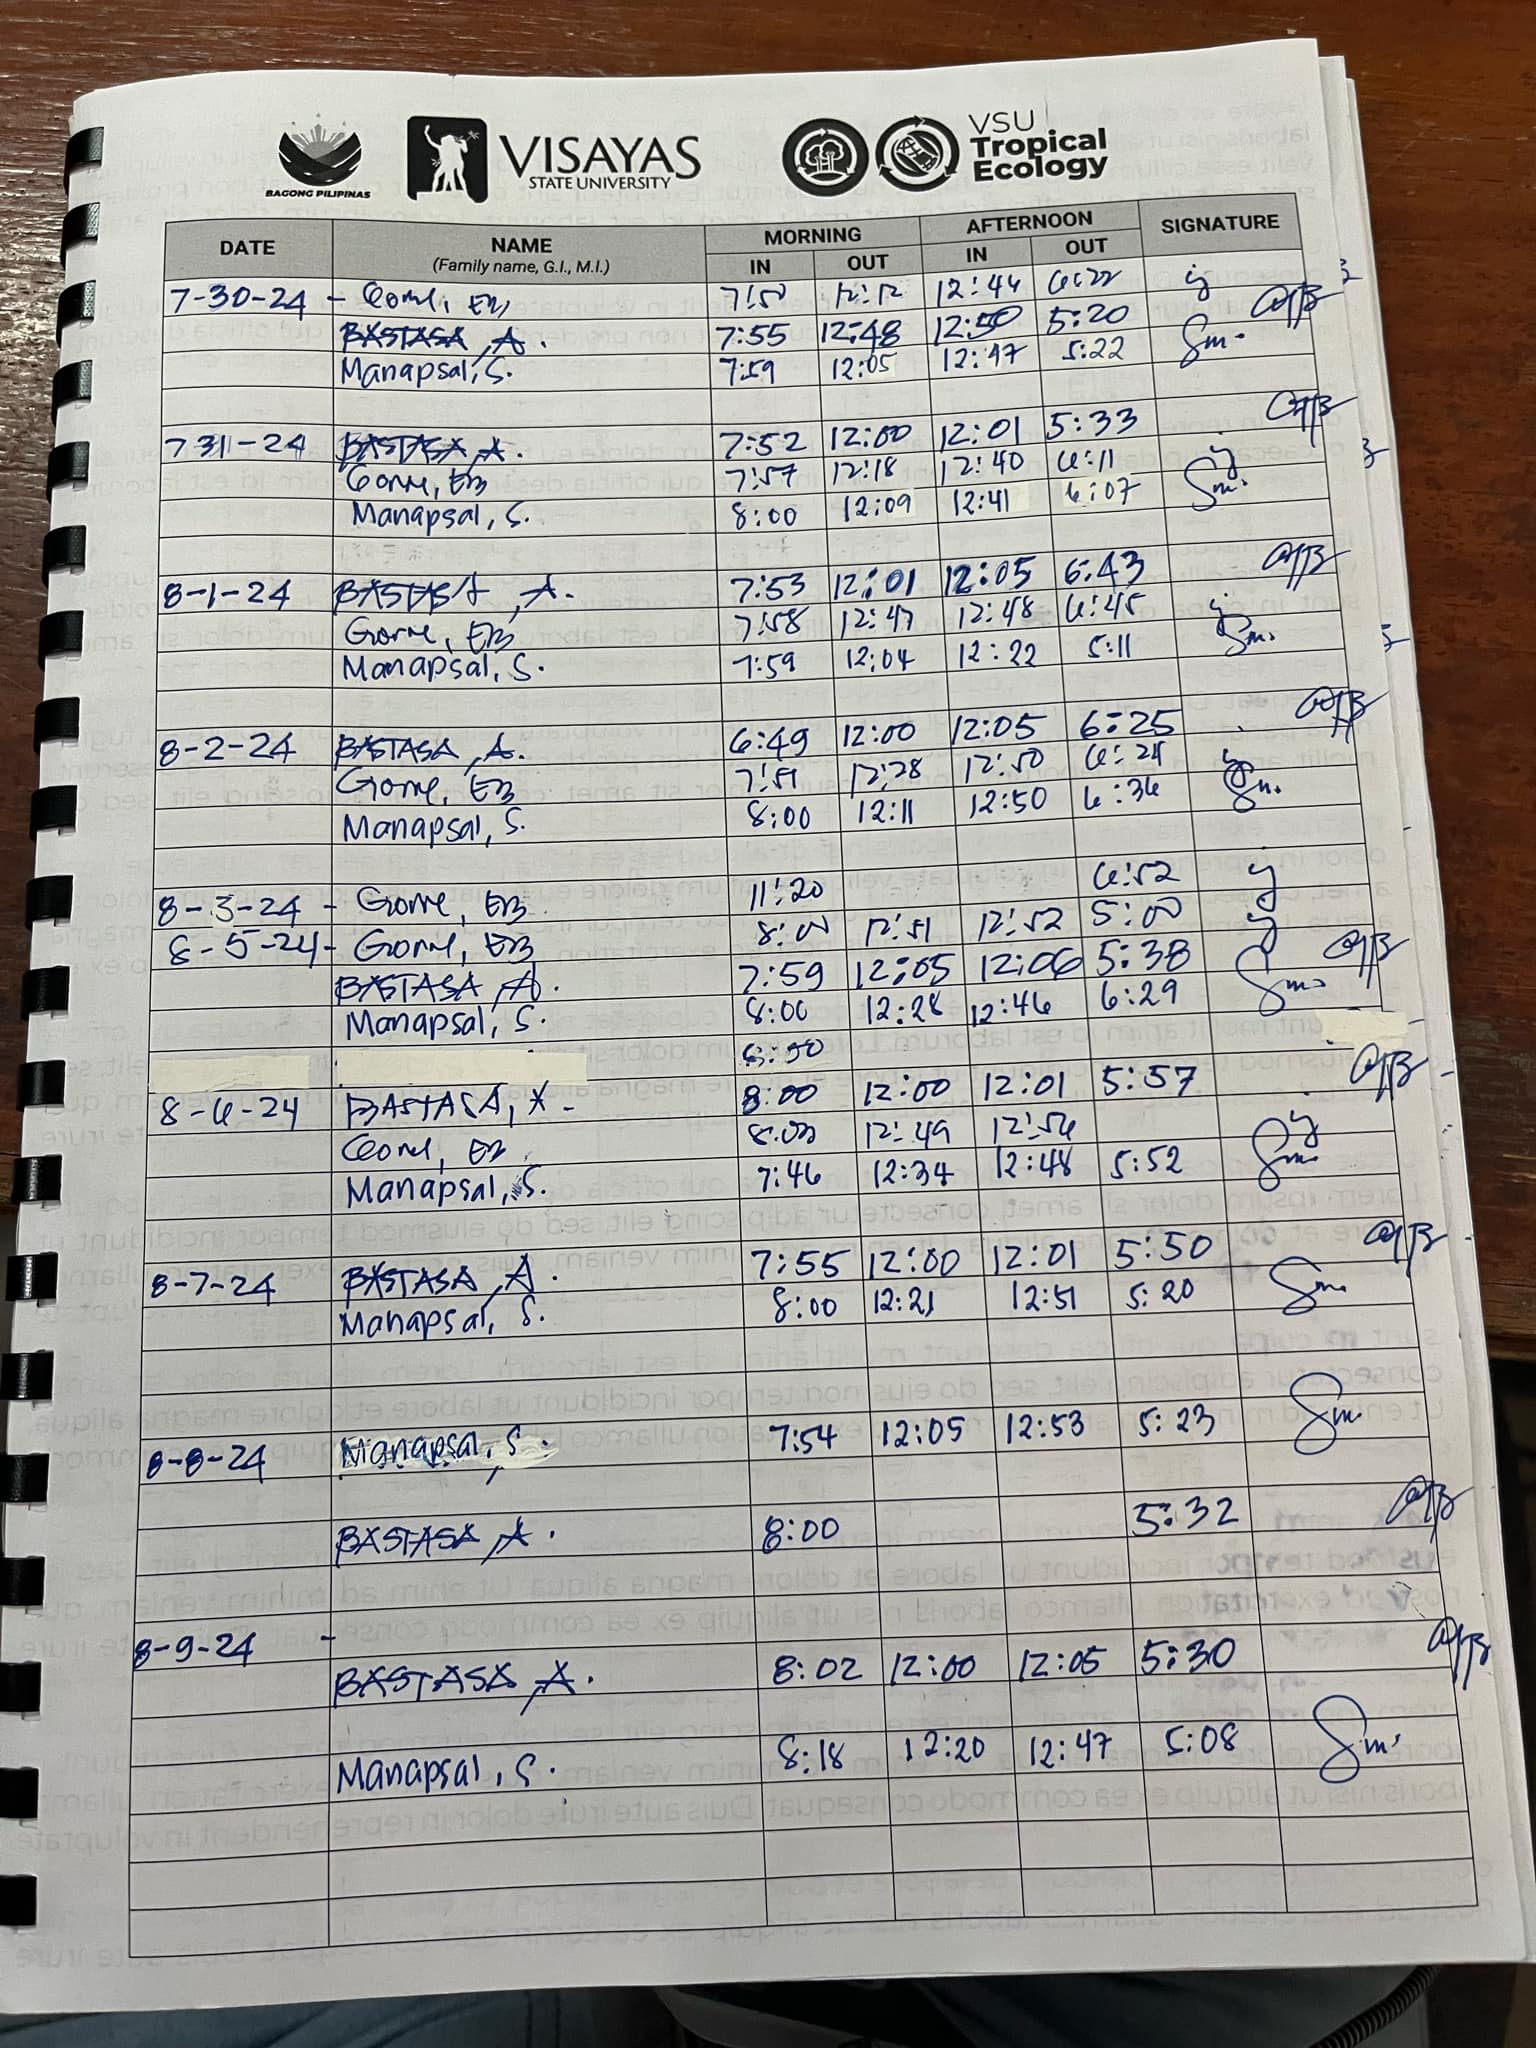 BAGONG PILIPINAS
VISAYAS
STATE UNIVERSITY
VSU
Tropical
Ecology
DATE NAME MORNING AFTERNOON SIGNATURE
(Family name, G.I., M.I.) IN OUT IN OUT
7-30-24 - Gorne, EB 7:50 12:12 12:44 6:22
BASTASA, A. 7:55 12:48 12:50 5:20
Manapsal, S. 7:59 12:05 12:47 5:22 Sm.
7 31-24 BASTASA, A. 7:52 12:00 12:01 5:33
Gorne, EB 7:57 12:18 12:40 6:11
Manapsal, S. 8:00 12:09 12:41 6:07 Sm.
8-1-24 BASTASA, A. 7:53 12:01 12:05 6:43
Gorne, EB 7:58 12:47 12:48 6:45
Manapsal, S. 7:59 12:04 12:22 5:11 Sm.
8-2-24 BASTASA, A. 6:49 12:00 12:05 6:25
Gorne, EB 7:51 12:28 12:50 6:24
Manapsal, S. 8:00 12:11 12:50 6:36 Sm.
8-3-24 - Gorne, EB 11:20 6:52
8-5-24- Gorne, EB 8:00 12:51 12:52 5:00
BASTASA, A. 7:59 12:05 12:06 5:38
Manapsal, S. 8:00 12:28 12:46 6:29 Sm.
8-6-24 BASTASA, A. 8:00 12:00 12:01 5:57
Gorne, EB 8:03 12:49 12:56
Manapsal, S. 7:46 12:34 12:48 5:52 Sm.
8-7-24 BASTASA, A. 7:55 12:00 12:01 5:50
Manapsal, S. 8:00 12:21 12:51 5:20 Sm.
8-8-24 Manapsal, S. 7:54 12:05 12:53 5:23 Sm.
BASTASA, A. 8:00 5:32
8-9-24 -
BASTASA, A. 8:02 12:00 12:05 5:30
Manapsal, S. 8:18 12:20 12:47 5:08 Sm.